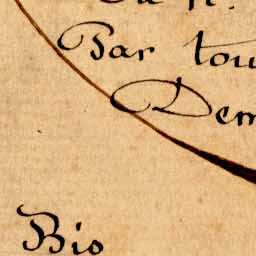 Par tou
Dem
Bis